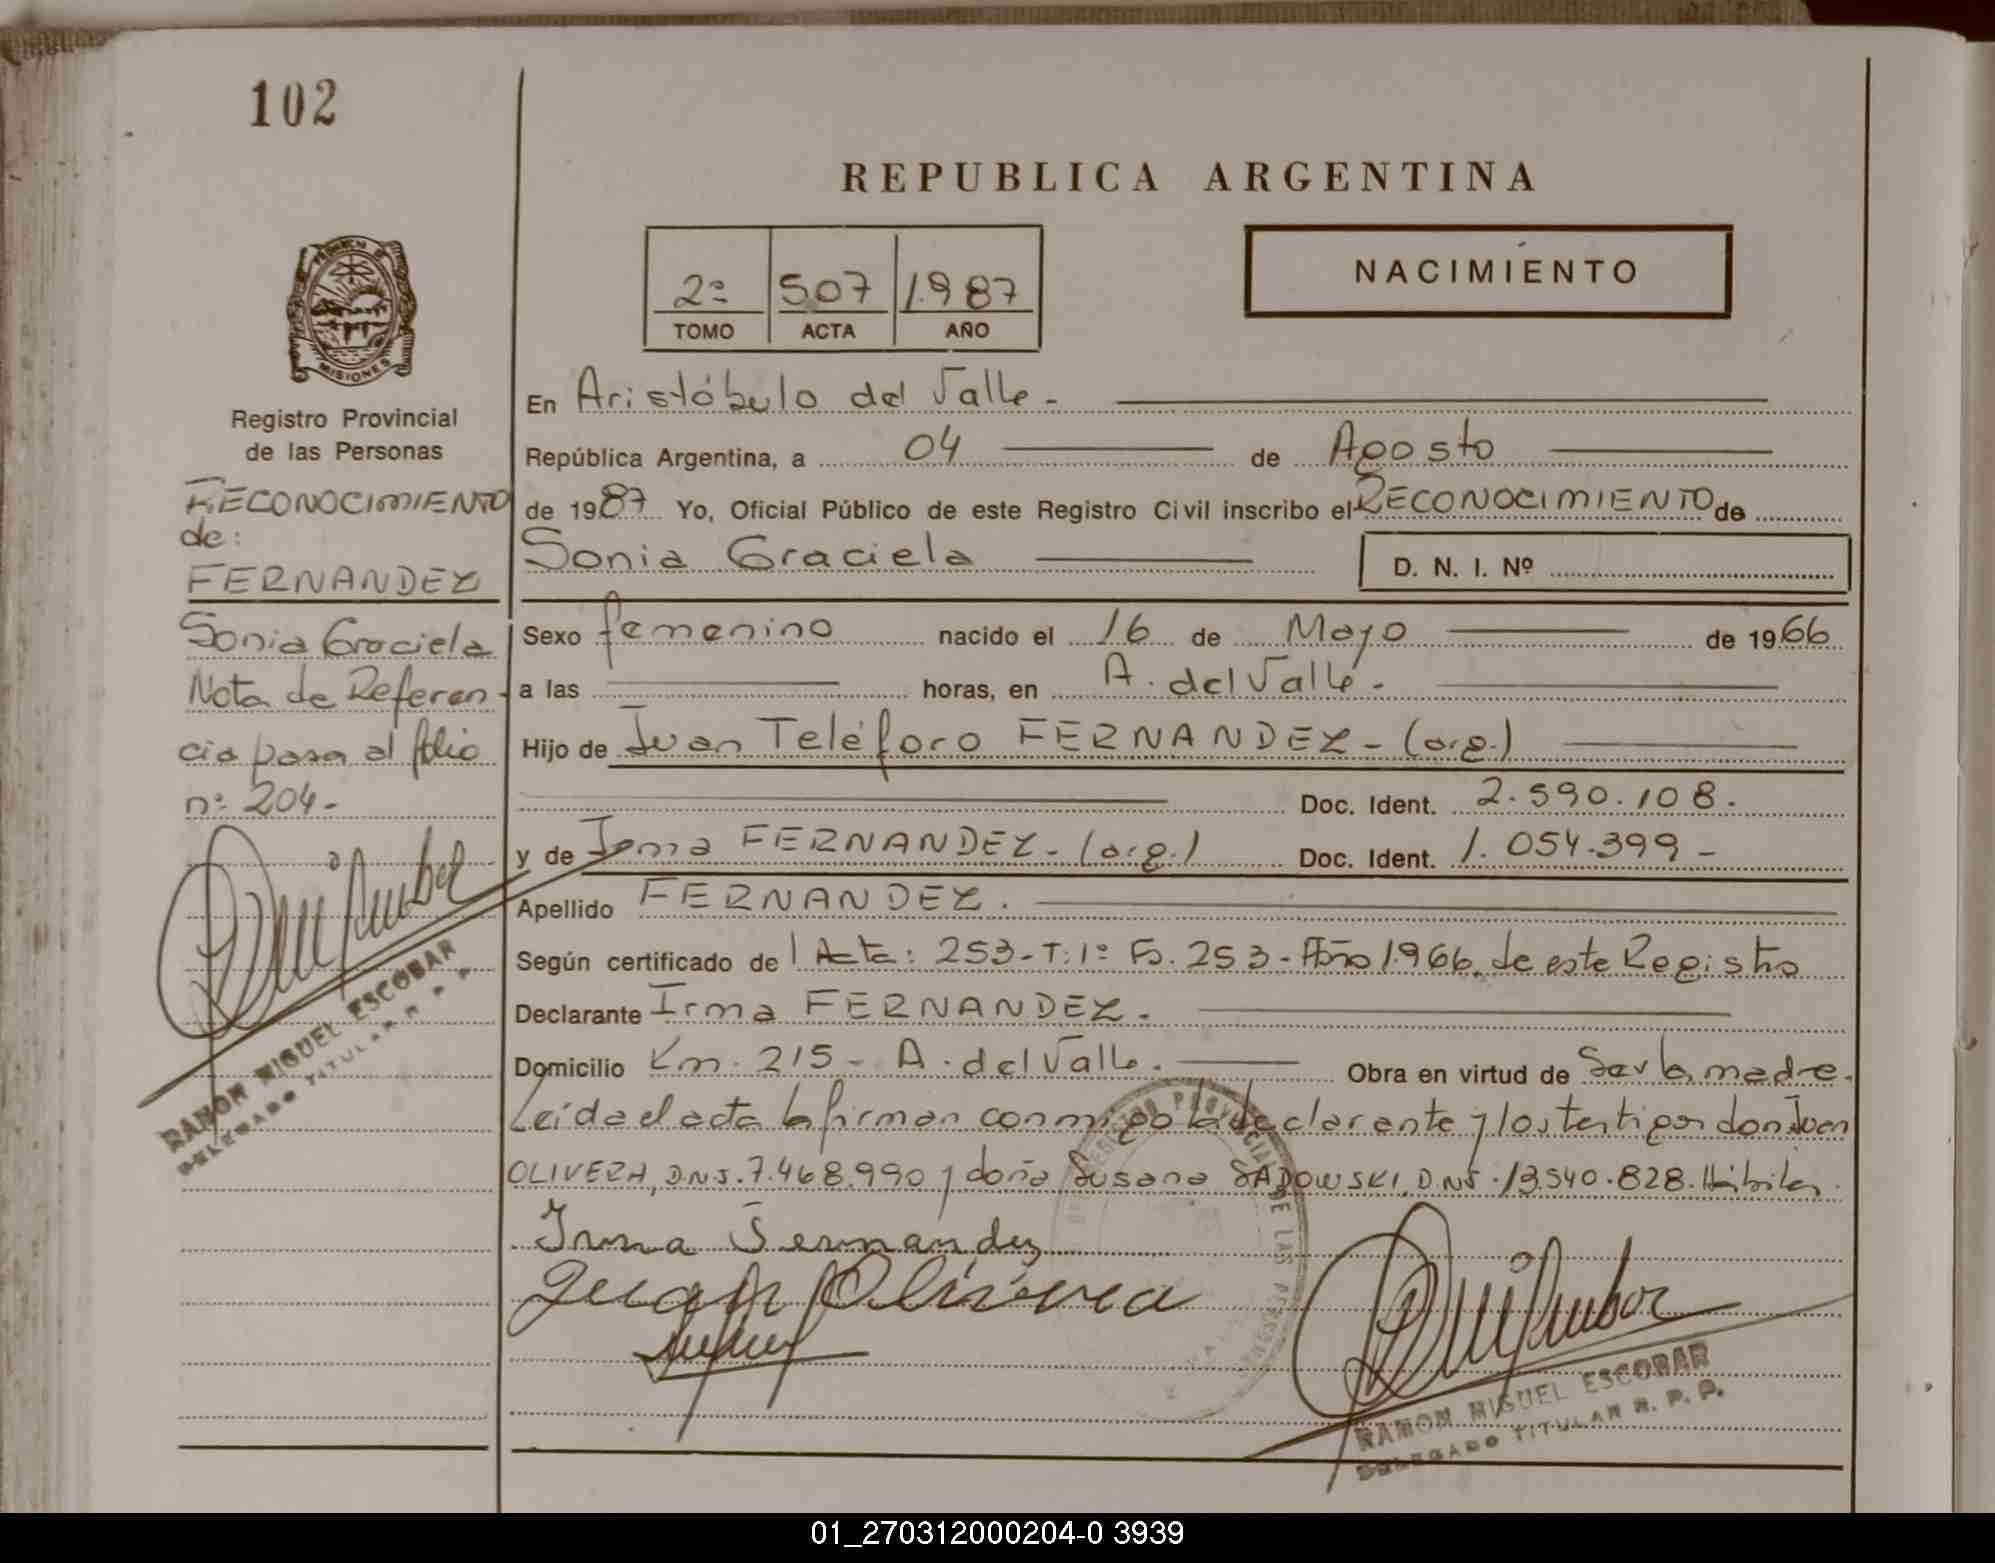 102
REPUBLICA ARGENTINA
2º 507 1.987
TOMO ACTA AÑO
NACIMIENTO
MISIONES
Registro Provincial
de las Personas
RECONOCIMIENTO
de:
FERNANDEZ
Sonia Graciela
Nota de Referen-
cia pasa al folio
nº 204-
RAMON MIGUEL ESCOBAR
DELEGADO TITULAR R. P. P.
En Aristóbulo del Valle.-
República Argentina, a 04 de Agosto
de 1987. Yo, Oficial Público de este Registro Civil inscribo el RECONOCIMIENTO de
Sonia Graciela D. N. I. Nº
Sexo femenino nacido el 16 de Mayo de 1966
a las horas, en A. del Valle.-
Hijo de Juan Teléforo FERNANDEZ-(arg.)
Doc. Ident. 2.590.108.
y de Irma FERNANDEZ-(arg.) Doc. Ident. 1.054.399-
Apellido FERNANDEZ.
Según certificado de Acta: 253-T:1º Fº. 253-Año 1.966, de este Registro
Declarante Irma FERNANDEZ.
Domicilio Km. 215- A. del Valle. Obra en virtud de Ser la madre.
Leída el acta la firman conmigo la declarante y los testigos don Juan
OLIVERA, D.N.I. 7.468.990 y doña Susana SADOWSKI, D.N.I. 13.540.828. Hábiles.
Irma Fernandez
Juan Olivera
REGISTRO PROVINCIAL DE LAS PERSONAS
RAMON MIGUEL ESCOBAR
DELEGADO TITULAR R. P. P.
01_270312000204-0 3939